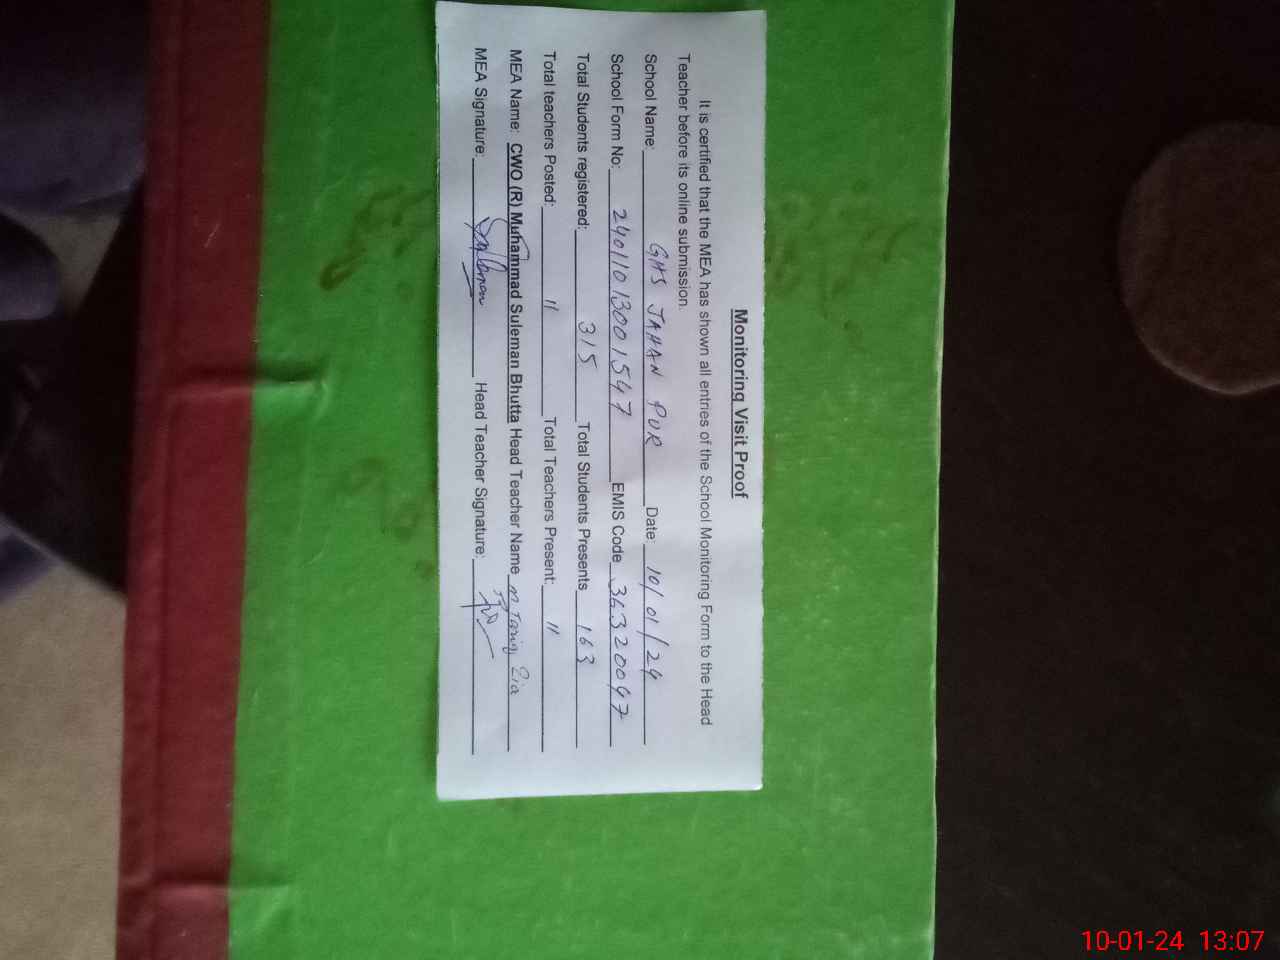 Monitoring Visit Proof
It is certified that the MEA has shown all entries of the School Monitoring Form to the Head
Teacher before its online submission.
School Name: GHS JAHAN PUR Date: 10/01/24
School Form No: 24011013001547 EMIS Code 36320047
Total Students registered: 315 Total Students Presents 163
Total teachers Posted: 11 Total Teachers Present: 11
MEA Name: CWO (R) Muhammad Suleman Bhutta Head Teacher Name M Tariq Zia
MEA Signature: Suleman Head Teacher Signature:
10-01-24 13:07